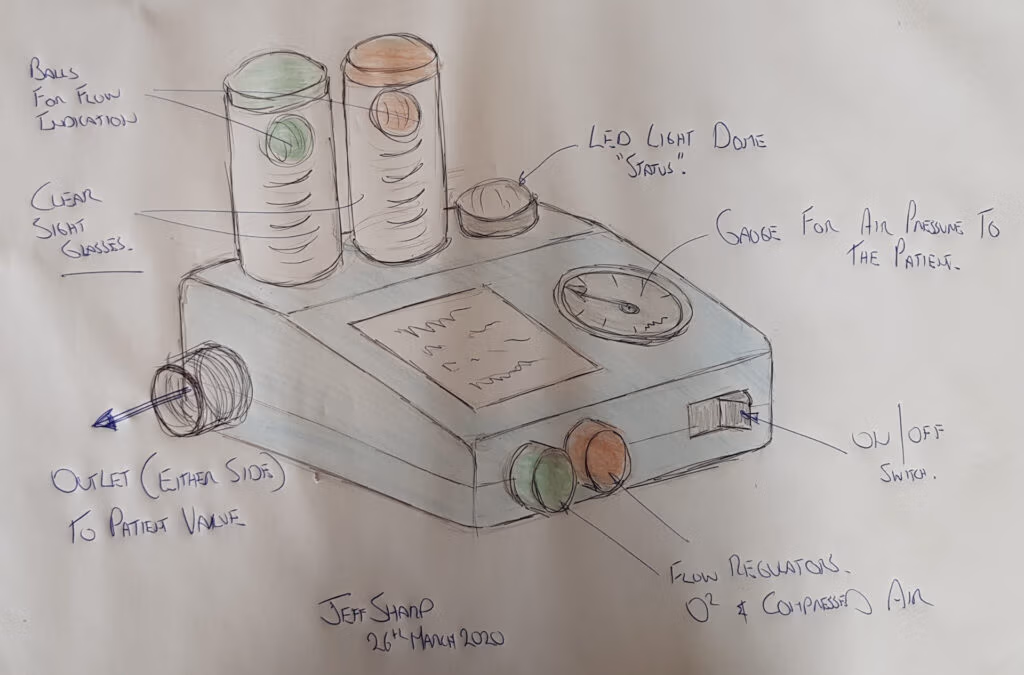 BALLS
FOR FLOW
INDICATION
CLEAR
SIGHT
GLASSES.
LED LIGHT DOME
"STATUS".
GAUGE FOR AIR PRESSURE TO
THE PATIENT.
ON/OFF
SWITCH.
OUTLET (EITHER SIDE)
TO PATIENT VALVE
FLOW REGULATORS.
O² & COMPRESSED AIR
JEFF SHARP
26TH MARCH 2020